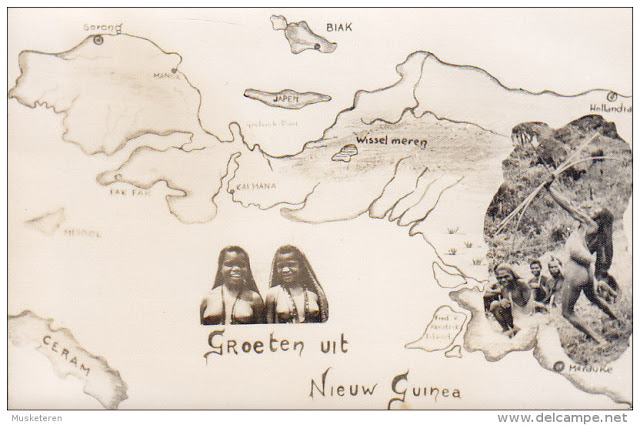 Sorong
BIAK
MANOK.
JAPEN
Hollandia
Wissel meren
FAK FAK
KAIMANA
MISOOL
Fred. v.
Hendrik
Eiland
CERAM
GROETEN UIT
NIEUW GUINEA
Merauke
Musketeren
delcampe.net